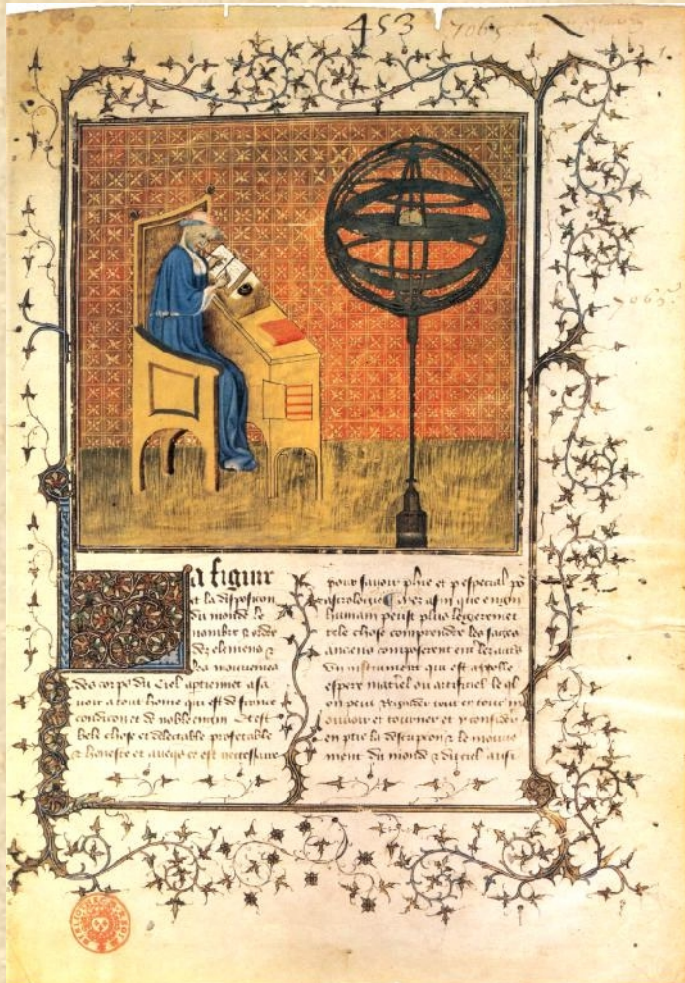 453
7065
1.
7065
La figure
et la disposicion
du monde le
nombre & ordre
des elemens &
les mouvemens
des corps du ciel aptiennet a sa
voir a tout home qui est de franche
condicion et de noble engin Et est
bele chose et delectable profetable
& honeste et avecqs ce est necessaire
pour savoir phie et p especial po
astrologie mes afin que engin
humain peust plus legierement
tele chose comprendre les sages
anciens composerent en leurs
un instrument qui est apelle
espere materiel ou artificiel le ql
on peut regarder tout en tour m
ouvoir et tourner et y considerer
en ptie la descripcion & le mouve
ment du monde & du ciel aussi